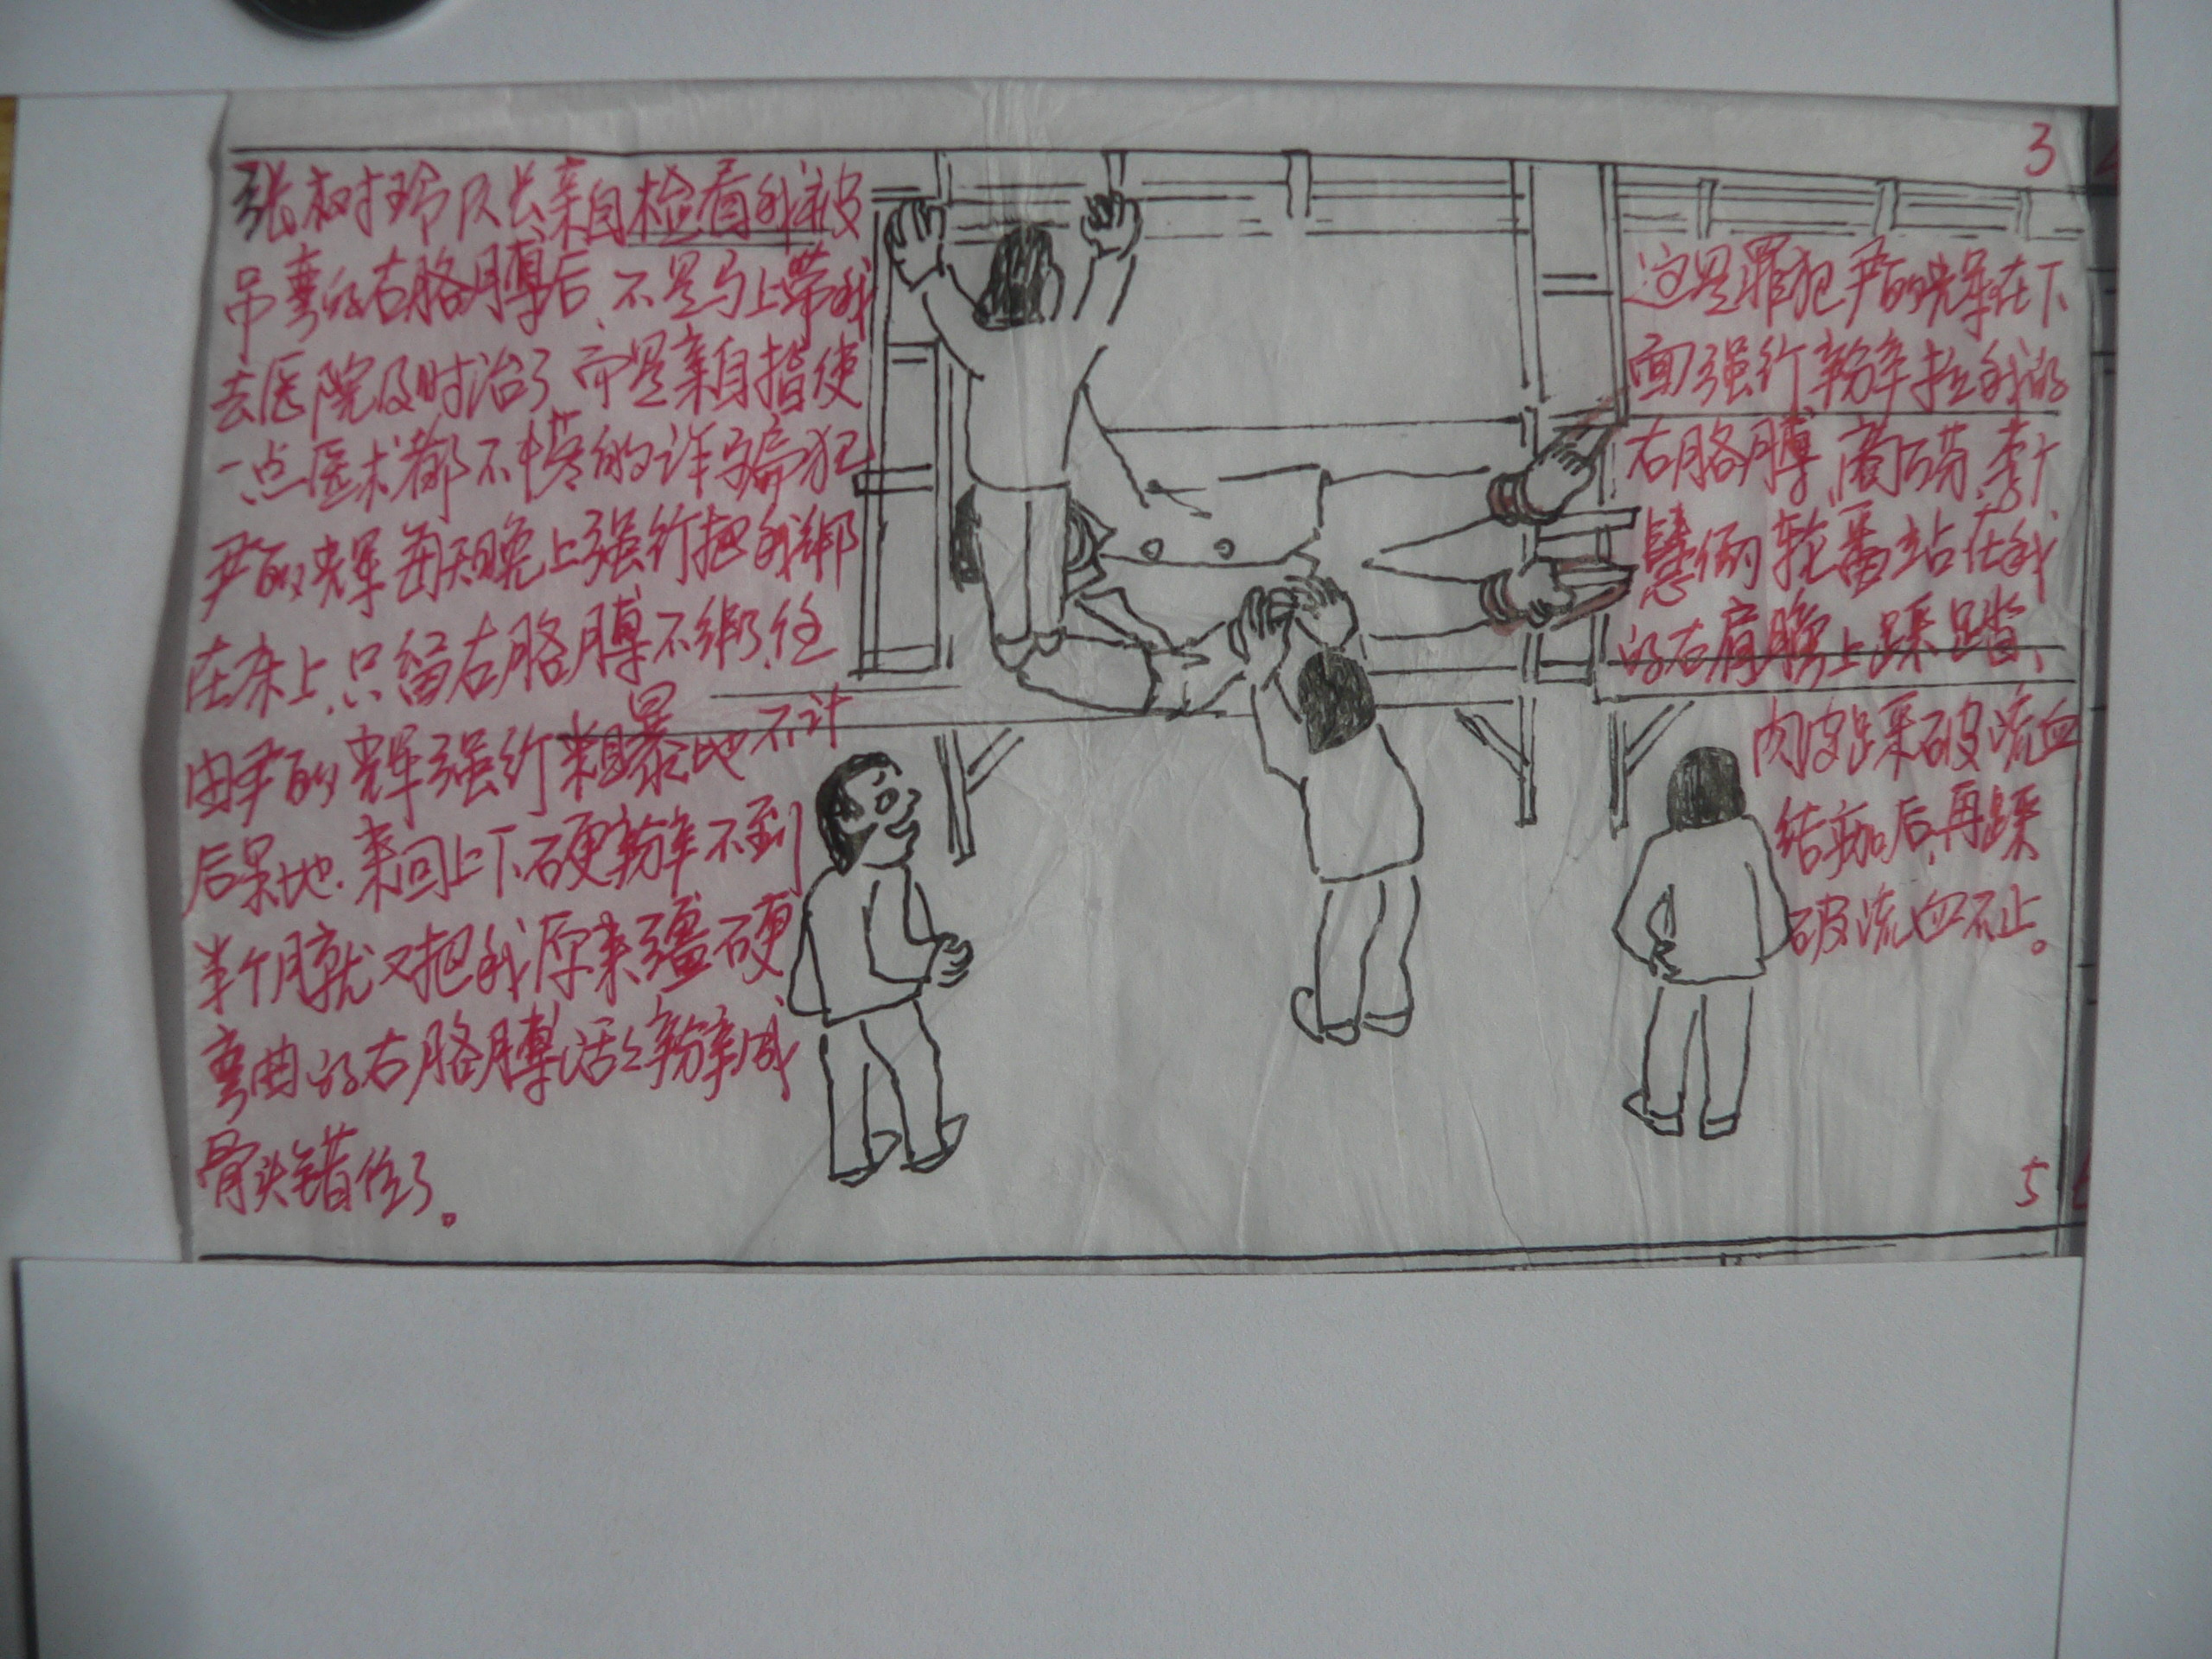 3
张树玲队长亲自检看我被
吊弯的右胳膊后、不是马上带我
去医院及时治了而是亲自指使
一点医术都不懂的诈骗犯
尹的辉每天晚上强行把我绑
在床上、只留右胳膊不绑、任
由尹的辉强行粗暴地不计
后果地、来回上下硬掰不到
半个月就又把我原来僵硬
弯曲的右胳膊活々掰成
骨头错位了。
这是罪犯尹的辉在下
面强行掰拉我的
右胳膊、
俩轮番站在我
的右肩膀上踩踏、
肉皮踩破流血
结痂后、再踩
破流血不止。
5